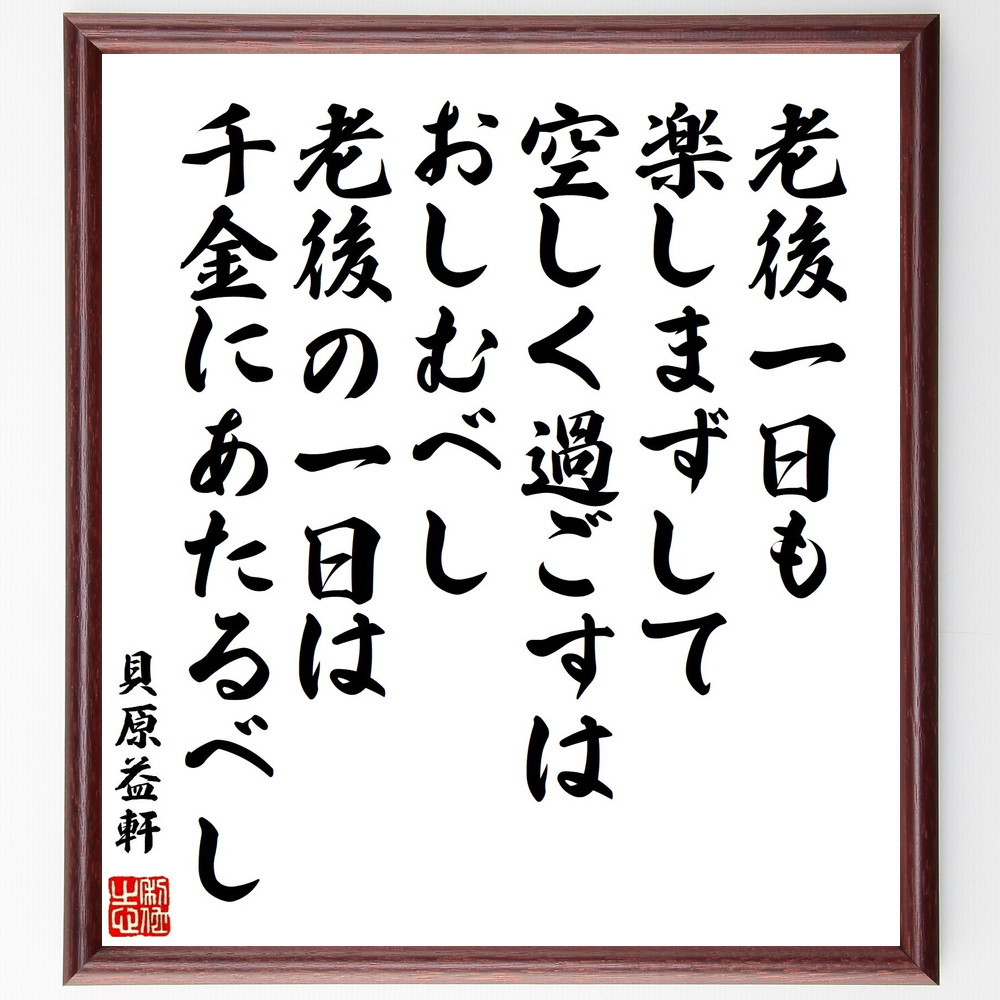 老後一日も
楽しまずして
空しく過ごすは
おしむべし
老後の一日は
千金にあたるべし
貝原益軒